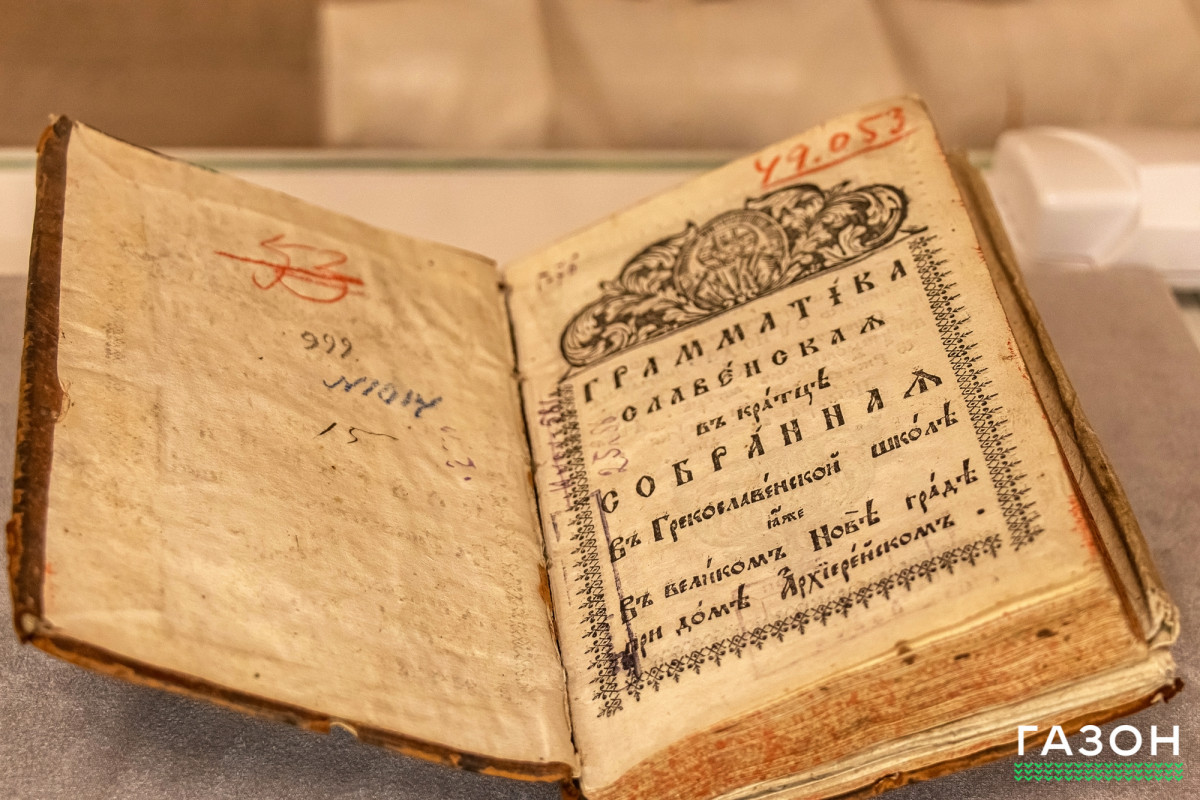 53
666
15
49.053
ГРАММАТІ́КА
СЛАВЕ́НСКАѦ
въ кра́тцѣ
СОБРА́ННАѦ
въ Грекославе́нской шко́лѣ
ꙗ҆́же
въ вели́комъ Но́вѣ гра́дѣ
при до́мѣ А҆рхїере́йскомъ.
ГАЗОН